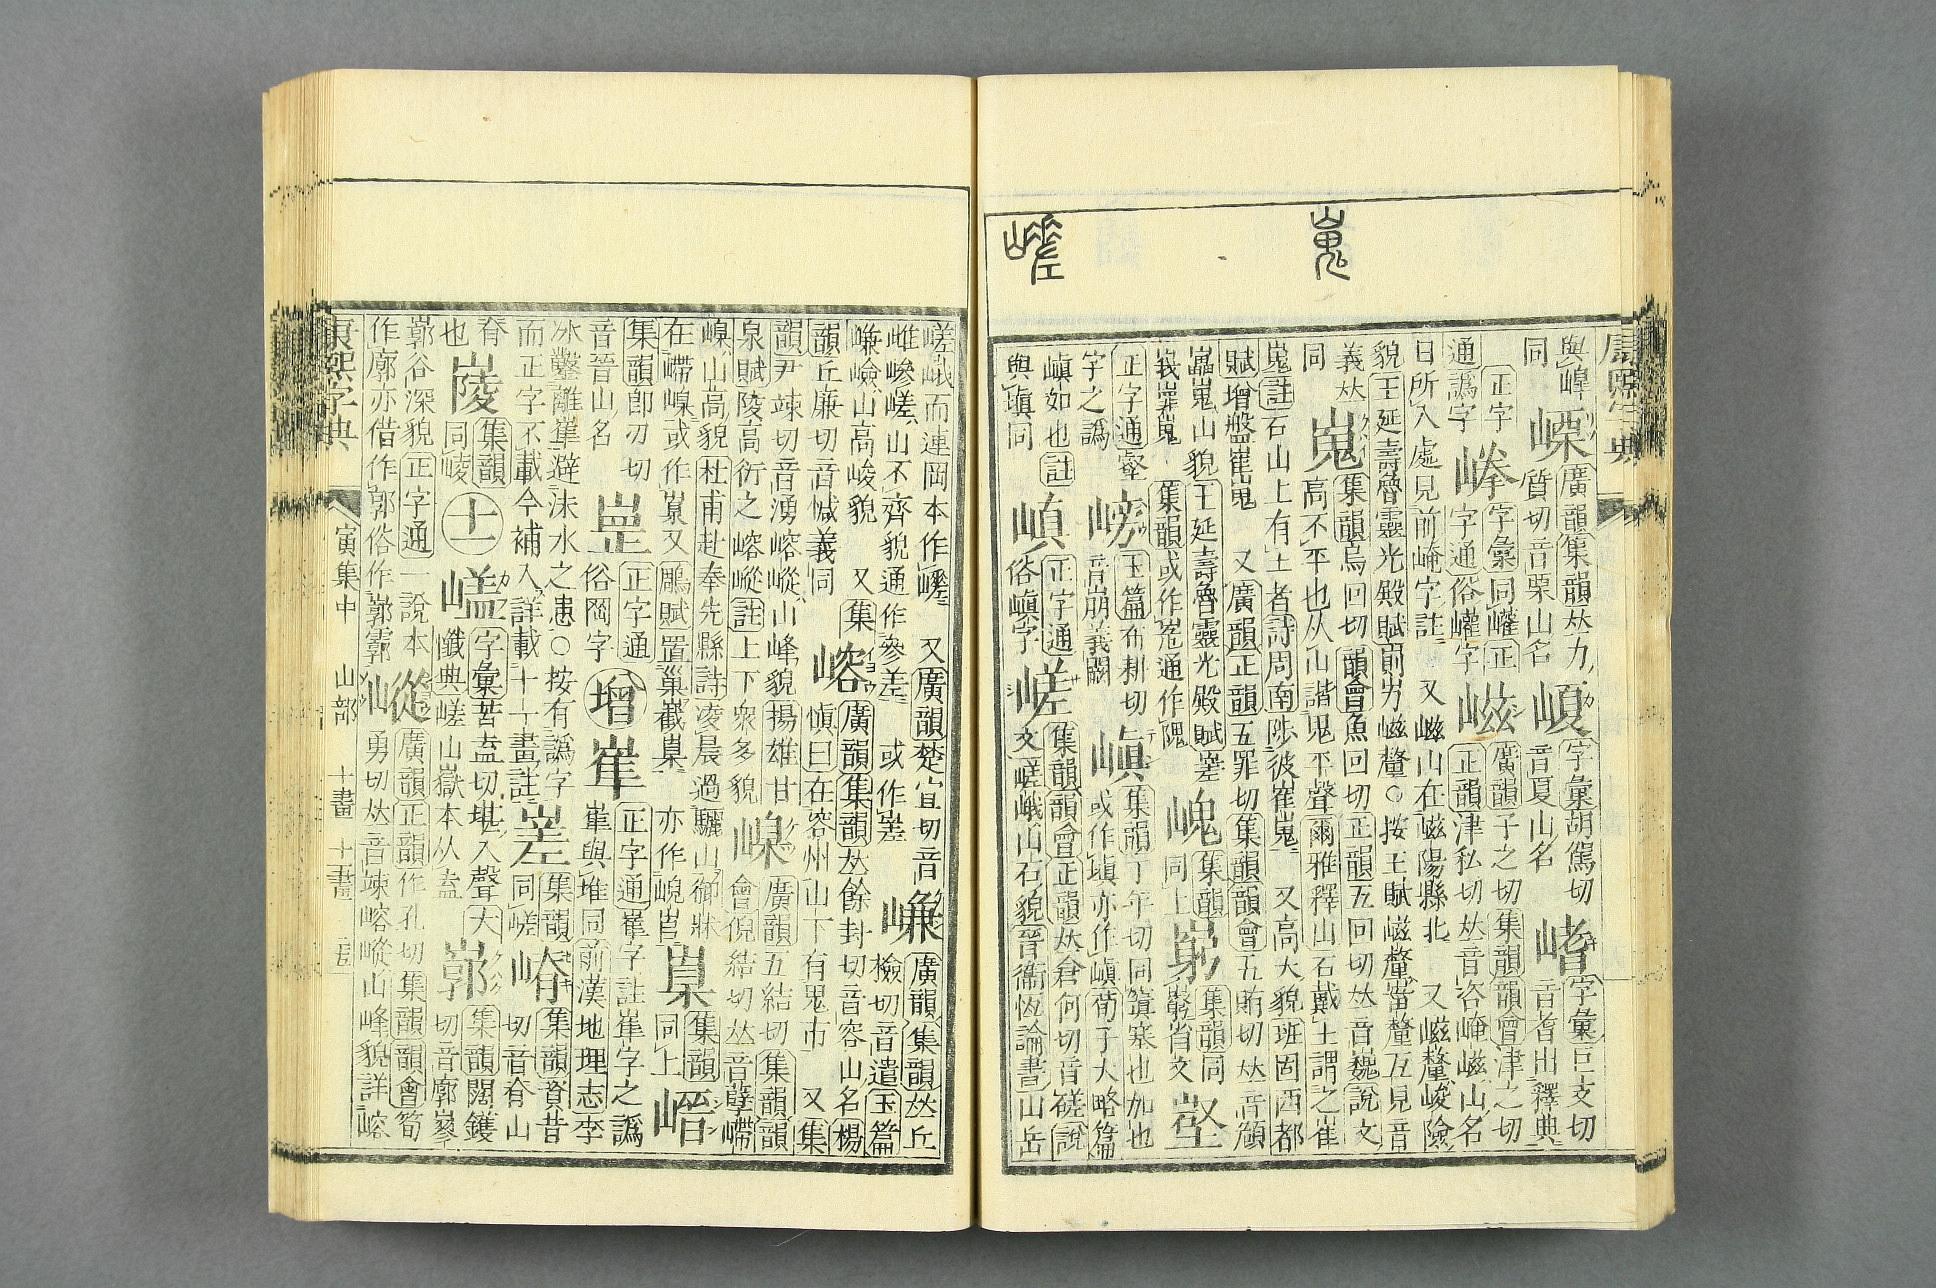 嵬
嵯
康熙字典
同 廣韻集韻𠀤力質切音栗山名 字彙胡駕切音夏山名 字彙巨支切音耆出釋典
正字通譌字 字彙同巏正字通俗巏字 嵫 廣韻子之切集韻韻會津之切正韻津私切𠀤音咨崦嵫山名
日所入處見前崦字註 又嵫山在嵫陽縣北 又嵫釐峻險貌王延壽魯靈光殿賦崱屴嵫釐○按王賦嵫釐當釐互見音
義𠀤同 嵬 集韻烏回切韻會魚回切正韻五回切𠀤音巍說文高不平也从山諧鬼平聲爾雅釋山石戴土謂之崔
嵬註石山上有土者詩周南陟彼崔嵬 又高大貌班固西都賦增盤崔嵬 又廣韻正韻五罪切集韻韻會五賄切𠀤音頠
嵬山貌王延壽魯靈光殿賦 集韻或作峞通作隗 集韻同上 集韻同省文
正字通壑字之譌 嵭 玉篇布耕切音崩義闕 嵮 集韻丁年切同窴塞也加也或作塡亦作嵮荀子大略篇
嵮如也註與塡同 正字通俗嵮字 嵯 集韻韻會正韻𠀤倉何切音磋說文嵯峨山石貌晉衞恆論書山岳
嵯峨而連岡本作 又廣韻楚宜切音雌嵾嵯山不齊貌通作參差 或作嵳 嵰 廣韻集韻𠀤丘檢切音遣玉篇
嵰嶮山高峻貌 又集韻丘廉切音義同 嵱 廣韻集韻𠀤餘封切音容山名楊愼曰在容州山下有鬼市 又集
韻尹竦切音湧嵱嵷山峰貌揚雄甘泉賦陵高衍之嵱嵷註上下衆多貌 嵲 廣韻五結切集韻韻會倪結切𠀤音孽嵽
嵲山高貌杜甫赴奉先縣詩凌晨過驪山御牀在嵽嵲或作又鵰賦置巢嶻 亦作 集韻同上
集韻卽刃切音晉山名 正字通俗岡字 增 正字通字註字之譌與堆同前漢地理志李
冰鑿離避沬水之患○按有譌字而正字不載今補入詳載十十畫註 嵳 集韻同嵯 嵴 集韻資昔切音脊山
脊也 集韻同崚 十一 字彙苦盍切堪入聲大懺典嵯山嶽本从盍 集韻闊鑊切音廓
谷深貌正字通一說本作廓亦借作郭俗作 嵷 廣韻正韻作孔切集韻韻會筍勇切𠀤音竦嵱嵷山峰貌詳嵱
康熙字典 寅集中 山部 十畫 十一畫